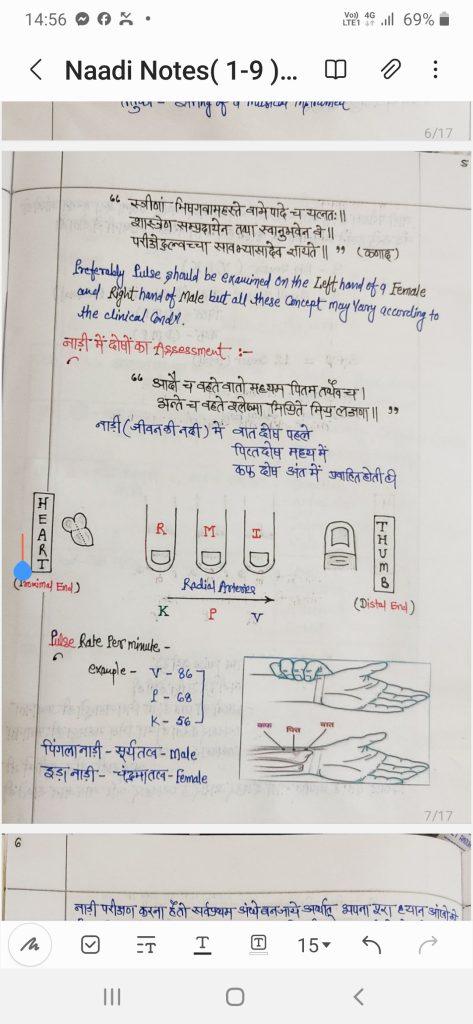 14:56
Vo)) 4G
LTE1
69%
Naadi Notes( 1-9 )...
6/17
5
“ स्त्रीणां भिषग्वामहस्ते वामे पादे च यत्नतः॥
शास्त्रेण सम्प्रदायेन तथा स्वानुभवेन वै॥
” (कणाद)
Preferably Pulse should be examined on the Left hand of a Female
and Right hand of Male but all these Concept may Vary according to
the clinical Condn.
नाड़ी में दोषों का Assessment :-
“ आदौ च वहते वातो मध्यम पितम तथैव च।
अन्ते च वहते श्लेष्मा ॥ ”
नाड़ी (जीवन की नदी) में वात दोष पहले
पित्त दोष मध्य में
कफ दोष अंत में प्रवाहित होती है
HEART
R M I
THUMB
(Proximal End)
Radial Arteries
(Distal End)
K P V
Pulse Rate Per minute -
example - V - 86
P - 68
K - 56
कफ पित्त वात
पिंगला नाड़ी - सूर्य तत्व - Male
इड़ा नाड़ी - चंद्रमा तत्व - Female
7/17
6
नाड़ी परीक्षण करना है तो सर्वप्रथम अंधे बन जाये अर्थात् अपना पूरा ध्यान आंखों से
T
T
T
15